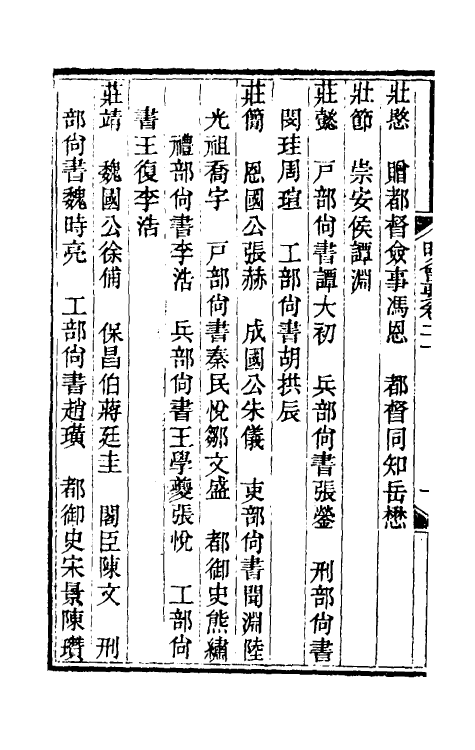 壯愍　贈都督僉事馮恩　都督同知岳懋
壯節　崇安侯譚淵
莊懿　戶部尙書譚大初　兵部尙書張鎣　刑部尙書
閔珪周瑄　工部尙書胡拱辰
莊簡　恩國公張赫　成國公朱儀　吏部尙書聞淵陸
光祖喬宇　戸部尙書秦民悅鄒文盛　都御史熊繡
禮部尙書李浩　兵部尙書王學夔張悅　工部尙
書王復李浩
莊靖　魏國公徐俌　保昌伯蔣廷圭　閣臣陳文　刑
部尙書魏時亮　工部尙書趙璜　都御史宋景陳瓚
明會要卷二一